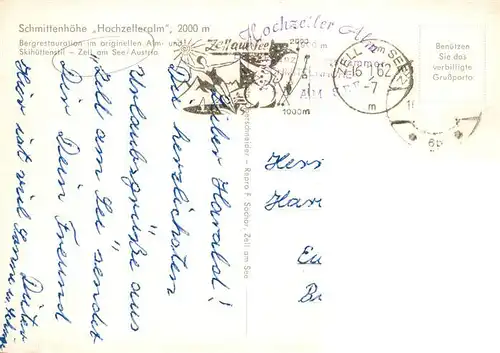 Schmittenhöhe „Hochzelleralm", 2000 m
Bergrestauration im originellen Alm- und
Skihüttenstil – Zell am See/Austria
Hochzeller Alm
Zell am See
2000 m
1000m
AM SEE
ZELL AM SEE
16 I 62
-7
m
Benützen
Sie das
verbilligte
Grußporto
Lieber Harald!
Die herzlichsten
Urlaubsgrüße aus
"Zell am See" sendet
Dir Dein Freund
Dieter
Hier ist viel Sonne u. Schnee
erschneider – Repro F. Sochor, Zell am See
Herr
Har
Eu
Br